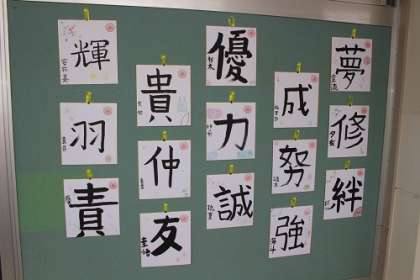 夢
修
絆
成
努
強
優
力
誠
貴
仲
友
輝
羽
責